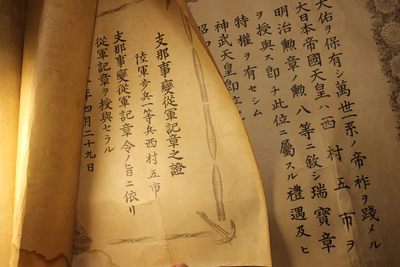 天佑ヲ保有シ萬世一系ノ帝祚ヲ踐メル
大日本帝國天皇ハ西村五市ヲ
明治勲章ノ勲八等ニ敘シ瑞寶章
ヲ授與ス即チ此位ニ屬スル禮遇及ヒ
特權ヲ有セシム
神武天皇即
昭
支那事變從軍記章之證
陸軍步兵一等兵西村五市
支那事變從軍記章令ノ旨ニ依リ
從軍記章ヲ授與セラル
年四月二十九日